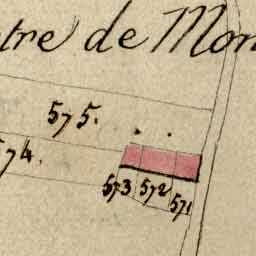 tre de Mon
575.
74.
573 572 571